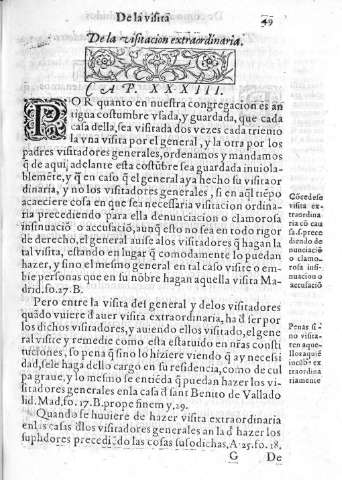 De la visita
49
De la visitacion extraordinaria.
CAP. XXXIII.
POR quanto en nuestra congregacion es an
tigua costumbre vsada, y guardada, que cada
casa della, sea visitada dos vezes cada trienio
la vna visita por el general, y la otra por los
padres visitadores generales, ordenamos y mandamos
q̃ de aqui adelante esta costũbre sea guardada inuiola-
blemẽte, y q̃ en caso q̃ el general aya hecho su visita or
dinaria, y no los visitadores generales, si en aq̃l tiẽpo
acaeciere cosa en que sea necessaria visitacion ordina-
ria precediendo para ella denunciacion o clamorosa
insinuaciõ o accusaciõ, aunq̃ esto no sea en todo rigor
de derecho, el general auise a los visitadores q̃ hagan la
tal visita, estando en lugar q̃ comodamente lo puedan
hazer, y sino el mesmo general en tal caso visite o em-
bie personas que en su nõbre hagan aquella visita Ma
drid. fo. 27. B.
Pero entre la visita del general y de los visitadores
quãdo vuiere d̃ auer visita extraordinaria, ha d̃ ser por
los dichos visitadores, y auiendo ellos visitado, el gene
ral visite y remedie como esta estatuido en nr̃as consti
tuciones, so pena q̃ sino lo hiziere viendo q̃ ay necesi
dad, se le haga dello cargo en su residencia, como de cul
pa graue, y lo mesmo se entiẽda q̃ puedan hazer los vi-
sitadores generales en la casa d̃ sant Benito de Vallado
lid. Mad. fo. 17. B. prope finem y. 29.
Quando se huuiere de hazer visita extraordinaria
en las casas d̃ los visitadores generales an la d̃ hazer los
suplidores precediẽdo las cosas susodichas, A. 25. fo. 18.
G De
Cõcedese
visita ex-
traordina
ria cõ cau
sa. s. prece
diendo de
nunciaciõ
o clamo-
rosa insi-
nuacion o
accusaciõ
Penas si
no visita-
ren aque-
llos a quiẽ
incũbe ex
traordina
riamente